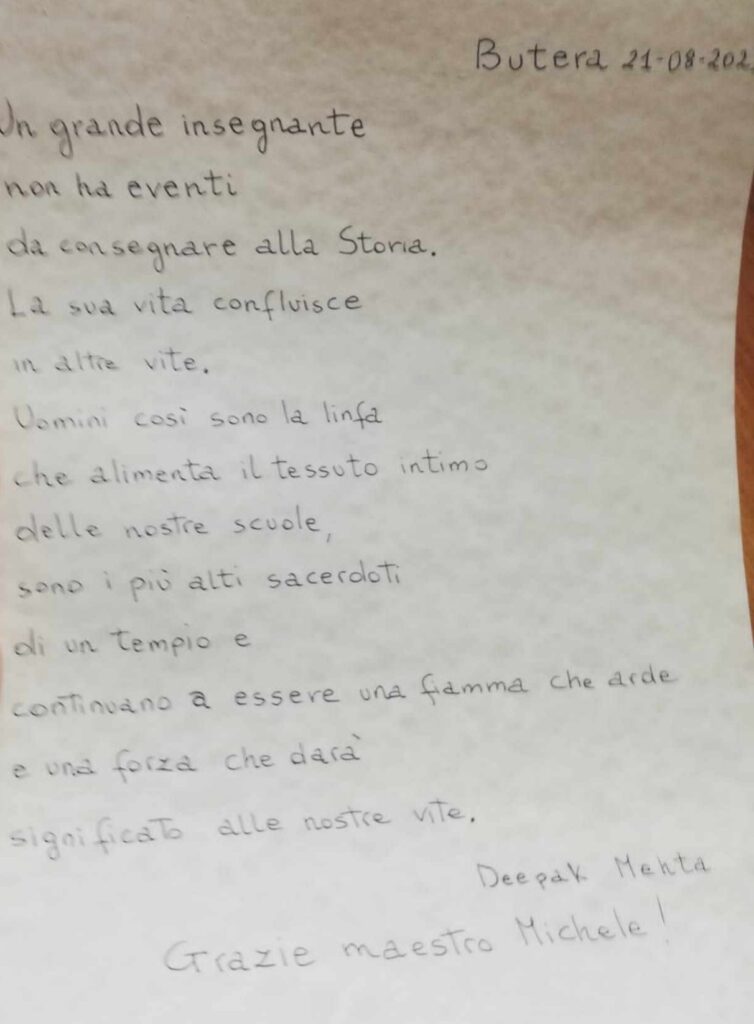 Butera 21-08-202
Un grande insegnante
non ha eventi
da consegnare alla Storia.
La sua vita confluisce
in altre vite.
Uomini così sono la linfa
che alimenta il tessuto intimo
delle nostre scuole,
sono i più alti sacerdoti
di un tempio e
continuano a essere una fiamma che arde
e una forza che darà
significato alle nostre vite.
Deepak Mehta
Grazie maestro Michele!